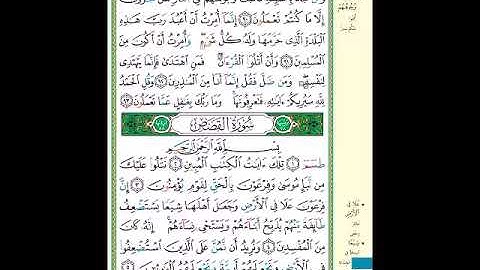 إِلَّا مَا كُنتُمْ تَعْمَلُونَ ٩٠ إِنَّمَا أُمِرْتُ أَنْ أَعْبُدَ رَبَّ هَٰذِهِ
الْبَلْدَةِ الَّذِي حَرَّمَهَا وَلَهُ كُلُّ شَيْءٍ وَأُمِرْتُ أَنْ أَكُونَ مِنَ
الْمُسْلِمِينَ ٩١ وَأَنْ أَتْلُوَا الْقُرْءَانَ فَمَنِ اهْتَدَىٰ فَإِنَّمَا يَهْتَدِي
لِنَفْسِهِ وَمَن ضَلَّ فَقُلْ إِنَّمَا أَنَا مِنَ الْمُنذِرِينَ ٩٢ وَقُلِ الْحَمْدُ
لِلَّهِ سَيُرِيكُمْ ءَايَاتِهِ فَتَعْرِفُونَهَا وَمَا رَبُّكَ بِغَافِلٍ عَمَّا تَعْمَلُونَ ٩٣
سُورَةُ الْقَصَصِ
بِسْمِ اللَّهِ الرَّحْمَٰنِ الرَّحِيمِ
طسم ١ تِلْكَ ءَايَاتُ الْكِتَابِ الْمُبِينِ ٢ نَتْلُوا عَلَيْكَ
مِن نَّبَإِ مُوسَىٰ وَفِرْعَوْنَ بِالْحَقِّ لِقَوْمٍ يُؤْمِنُونَ ٣ إِنَّ
فِرْعَوْنَ عَلَا فِي الْأَرْضِ وَجَعَلَ أَهْلَهَا شِيَعًا يَسْتَضْعِفُ
طَائِفَةً مِّنْهُمْ يُذَبِّحُ أَبْنَاءَهُمْ وَيَسْتَحْيِي نِسَاءَهُمْ إِنَّهُ كَانَ
مِنَ الْمُفْسِدِينَ ٤ وَنُرِيدُ أَن نَّمُنَّ عَلَى الَّذِينَ اسْتُضْعِفُوا
فِي الْأَرْضِ وَنَجْعَلَهُمْ أَئِمَّةً وَنَجْعَلَهُمُ الْوَارِثِينَ ٥